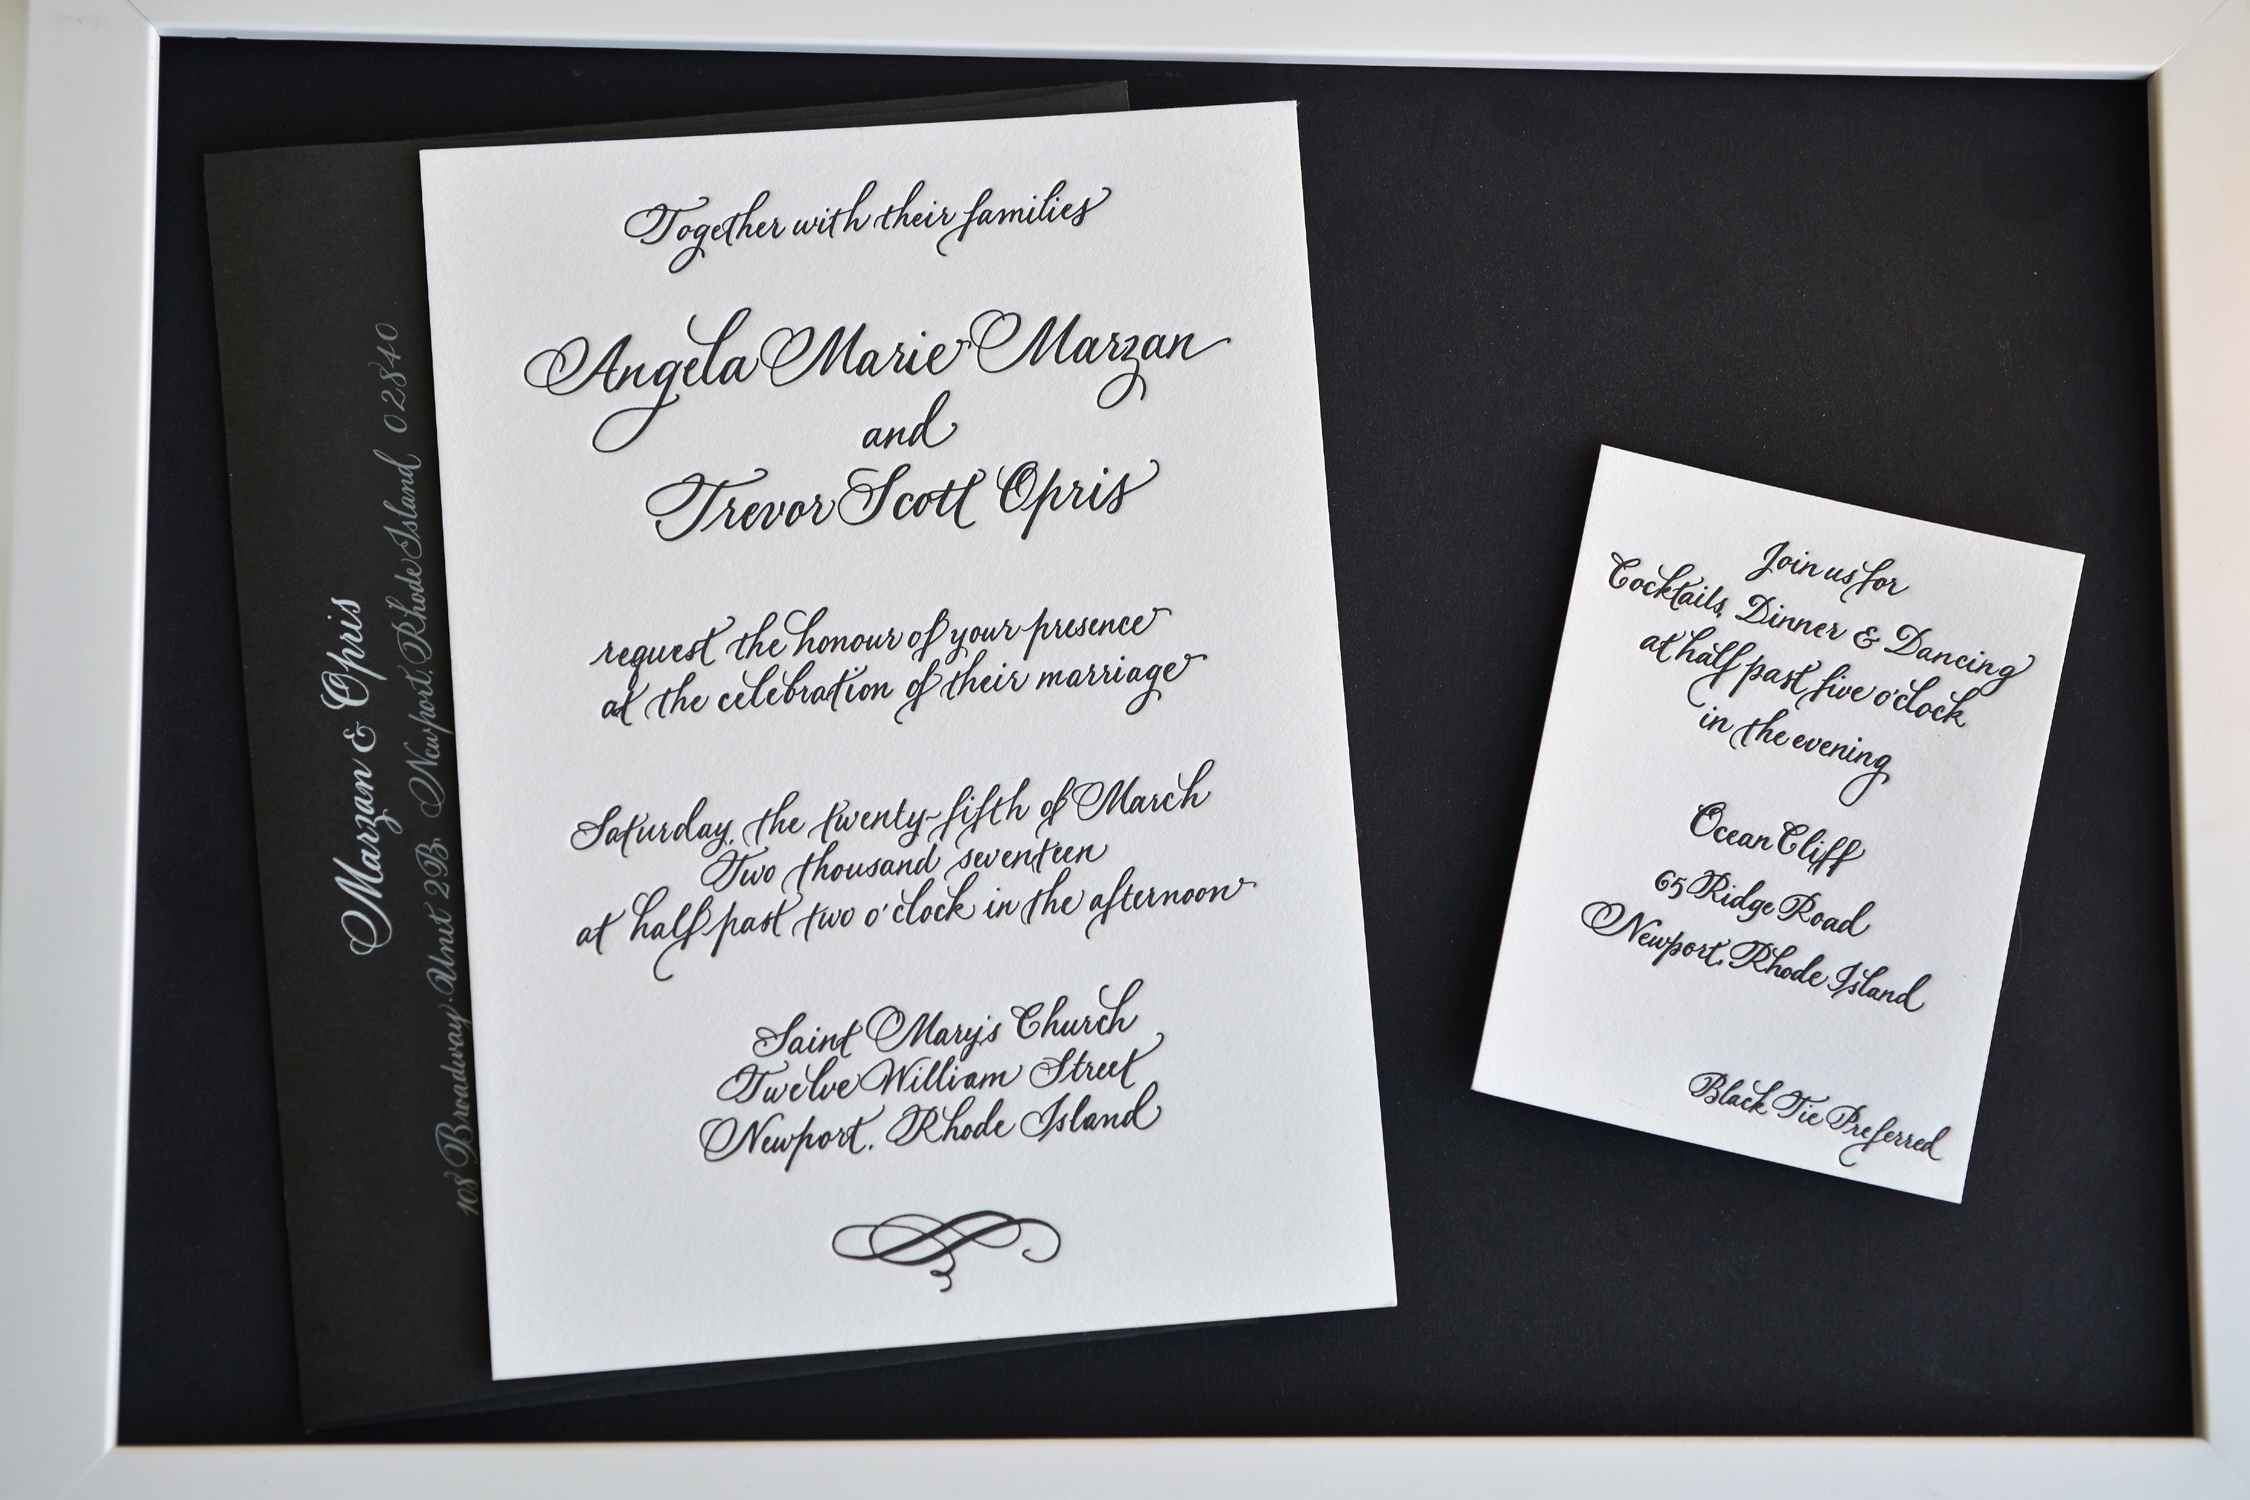 Marzan & Opris
108 Broadway, Unit 2B Newport, Rhode Island 02840
Together with their families
Angela Marie Marzan
and
Trevor Scott Opris
request the honour of your presence
at the celebration of their marriage
Saturday, the twenty-fifth of March
Two thousand seventeen
at half past two o'clock in the afternoon
Saint Mary's Church
Twelve William Street
Newport, Rhode Island
Join us for
Cocktails, Dinner & Dancing
at half past five o'clock
in the evening
Ocean Cliff
65 Ridge Road
Newport, Rhode Island
Black Tie Preferred